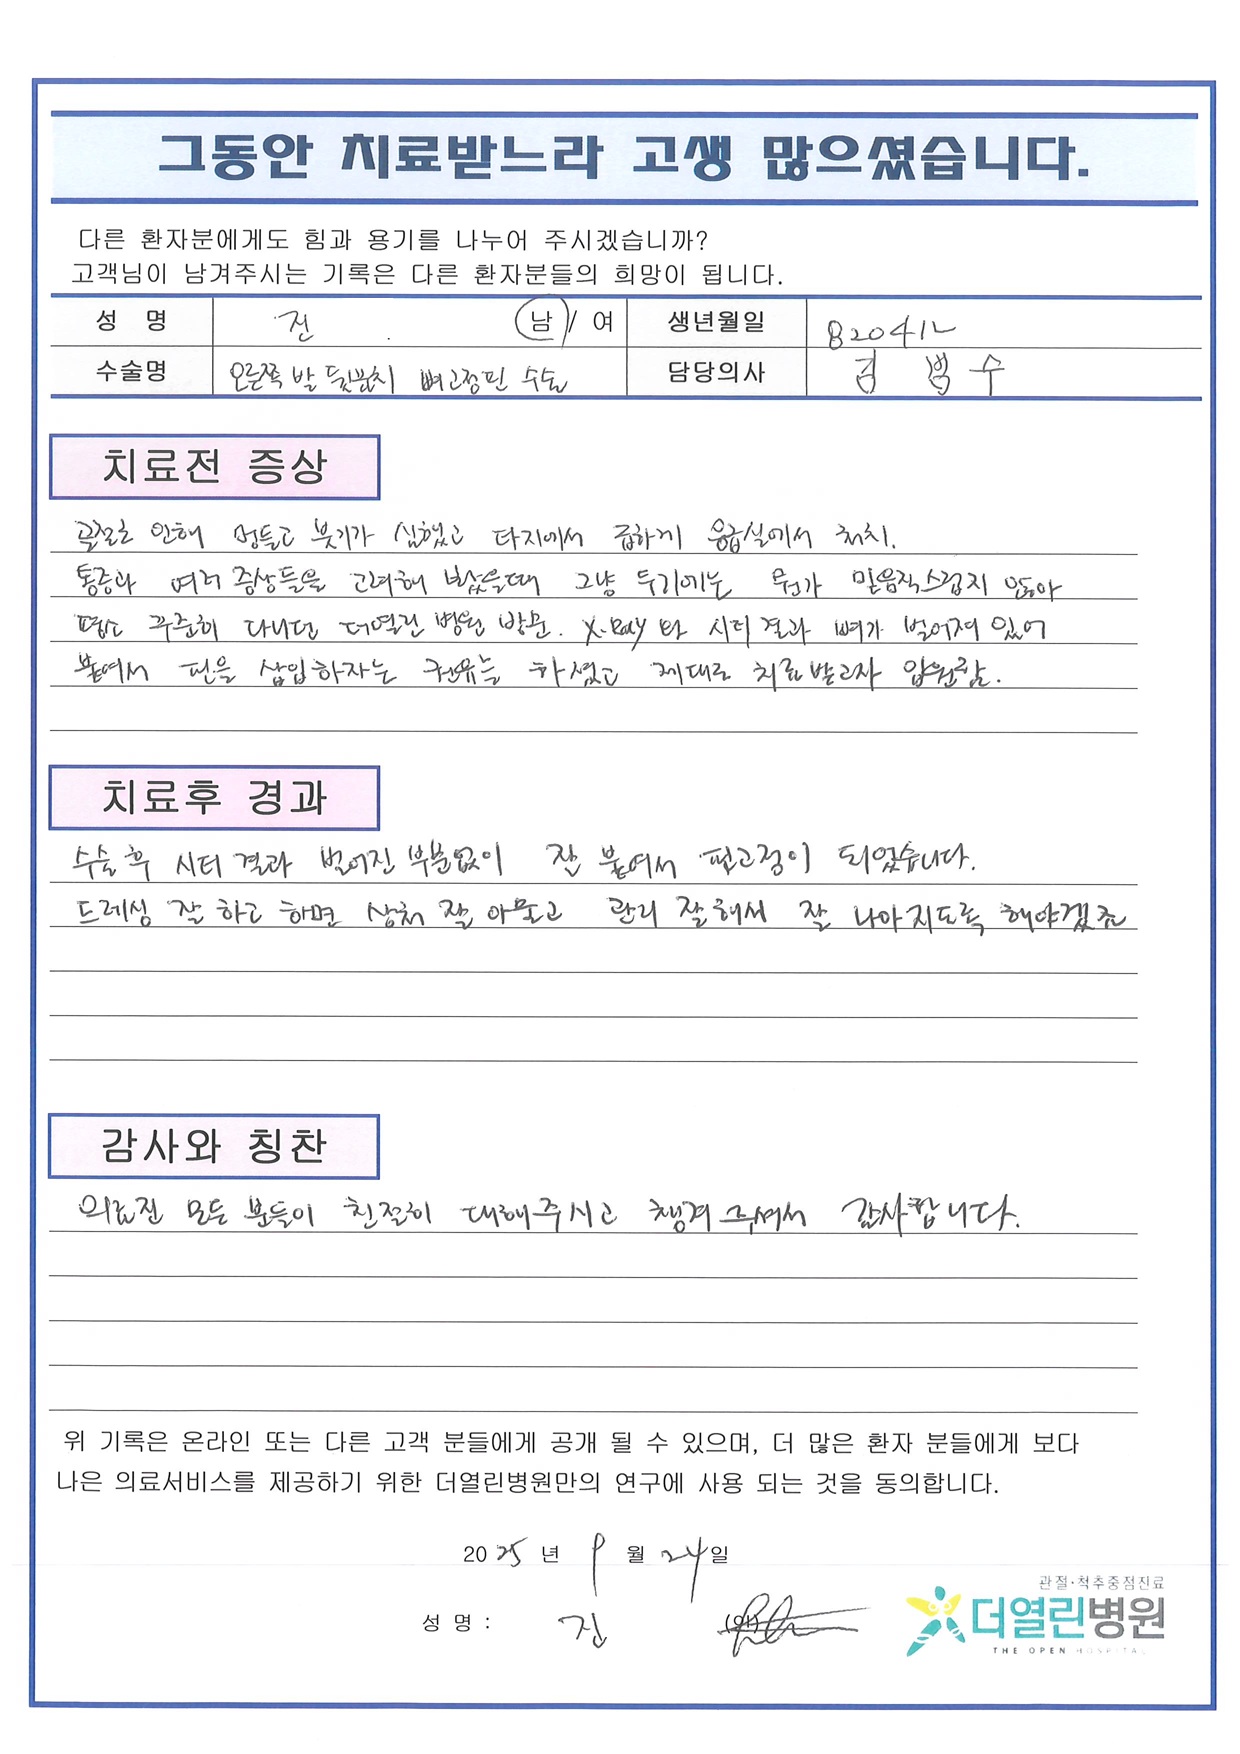 그동안 치료받느라 고생 많으셨습니다.
다른 환자분에게도 힘과 용기를 나누어 주시겠습니까?
고객님이 남겨주시는 기록은 다른 환자분들의 희망이 됩니다.
성 명 진 남 / 여 생년월일 820412
수술명 오른쪽 발 뒷꿈치 뼈고정핀 수술 담당의사 김 범 수
치료전 증상
골절로 인해 멍들고 붓기가 심했고 타지에서 급하게 응급실에서 처치.
통증과 여러 증상들을 고려해 봤을때 그냥 두기에는 뭔가 믿음직스럽지 않아
평소 꾸준히 다니던 더열린 병원 방문. X-Ray 와 시티 결과 뼈가 벌어져 있어
붙여서 핀을 삽입하자는 권유를 하셨고 제대로 치료받고자 입원함.
치료후 경과
수술 후 시티 결과 벌어진 부분없이 잘 붙여서 핀고정이 되었습니다.
드레싱 잘 하고 하면 상처 잘 아물고 관리 잘해서 잘 나아지도록 해야겠죠
감사와 칭찬
의료진 모든 분들이 친절히 대해주시고 챙겨 주셔서 감사합니다.
위 기록은 온라인 또는 다른 고객 분들에게 공개 될 수 있으며, 더 많은 환자 분들에게 보다
나은 의료서비스를 제공하기 위한 더열린병원만의 연구에 사용 되는 것을 동의합니다.
2025 년 9 월 24일
성 명 : 진 (인)
관절·척추중점진료
더열린병원
THE OPEN HOSPITAL